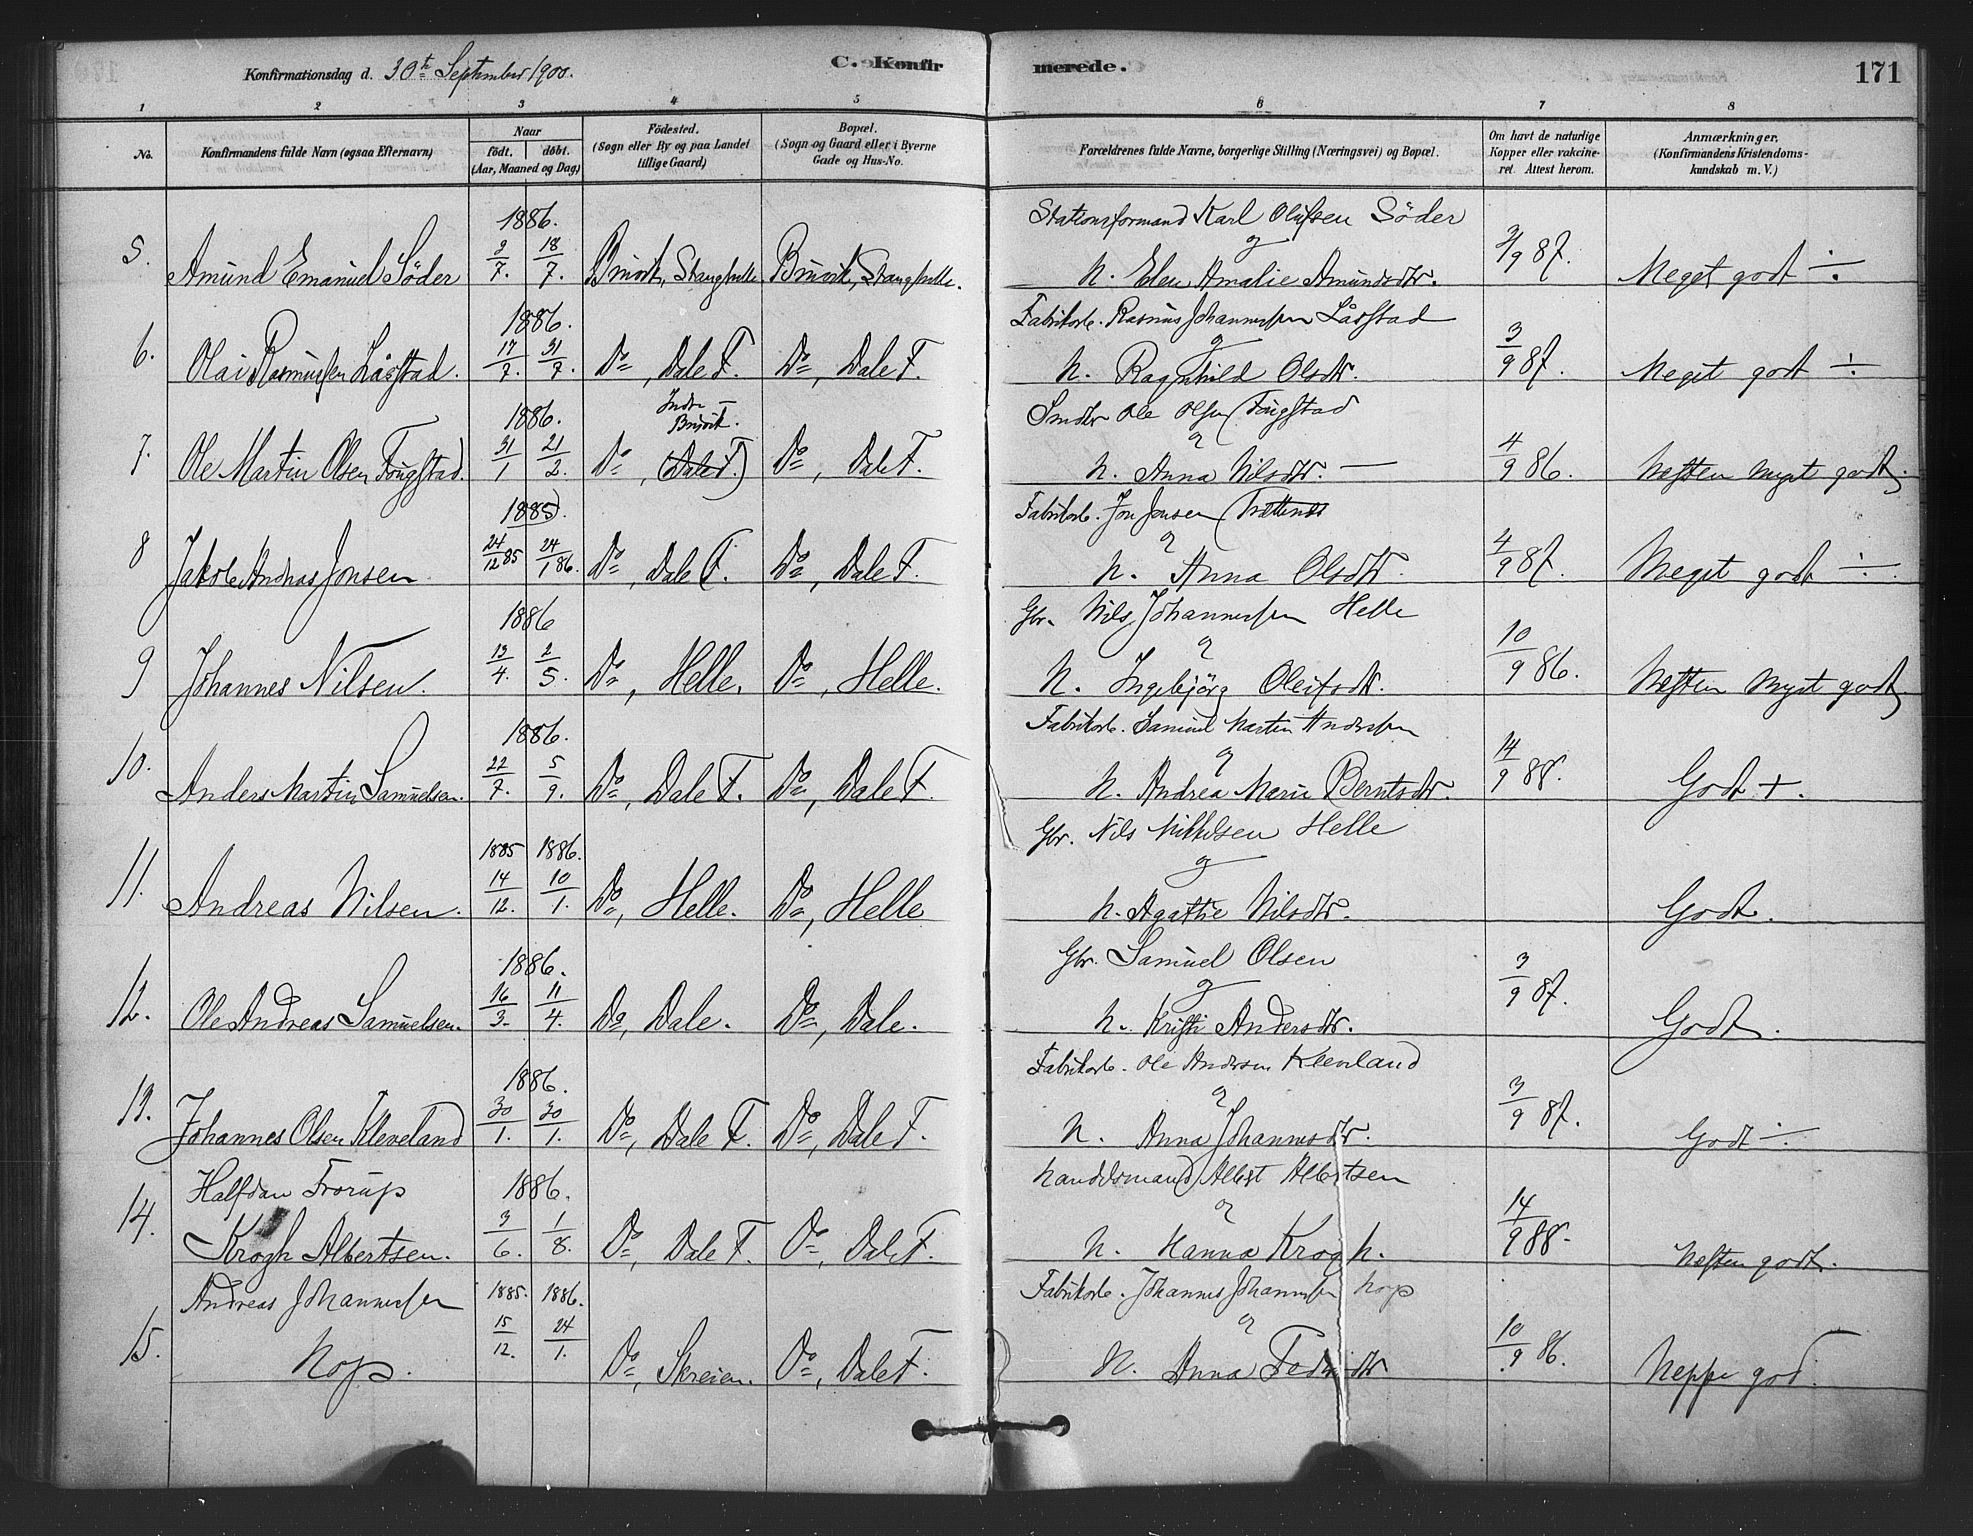 Konfirmationsdag d. 30th September 1900.
C. Konfirmerede.
171
1 2 3 4 5 6 7 8
No.
Konfirmandens fulde Navn (ogsaa Efternavn)
Naar
født. døbt.
(Aar, Maaned og Dag)
Födested.
(Sogn eller By og paa Landet
tillige Gaard)
Bopæl.
(Sogn og Gaard eller i Byerne
Gade og Hus-No.
Forældrenes fulde Navne, borgerlige Stilling (Næringsvei) og Bopæl.
Om havt de naturlige
Kopper eller vakcine-
ret. Attest herom.
Anmærkninger.
(Konfirmandens Kristendoms-
kundskab m. V.)
1886.
Stationsformand Karl Olufsen Söder
og
5. Amund Emanuel Söder 9/7. 18/7. Bruvik, Bruvik, N. Elen Amalie Amundsdtr. 2/9 87. Meget godt ÷
1886.
Fabrikarb. Rasmus Johannessen Låstad
og
6. Olai Rasmussen Låstad. 17/7. 31/7. Do, Dale F. Do, Dale F. N. Ragnhild Olsdtr. 3/9 87. Meget godt ÷
1886. Indre Bruvik.
Ole Olsen Fougstad
og
7. Ole Martin Olsen Fougstad. 31/1 21/2. Do, (Dale F.) Do, Dale F. N. Anna Nilsdtr. — 4/9 86. Næsten meget godt.
1885.
Fabrikarb. Jon Jonsen
og
8 Jakob Andreas Jonsen 24/12 85 24/1 86. Do, Dale F. Do, Dale F. N. Anna Olsdtr. 4/9 87. Meget godt ÷
1886
Gbr. Nils Johannessen Helle
og
9 Johannes Nilsen. 13/4. 2/5. Do, Helle. Do, Helle. N. Ingebjörg Oleifsdtr. 10/9 86. Næsten meget godt.
1886.
Fabrikarb. Samuel Martin Anderssen
og
10. Anders Martin Samuelsen. 22/7. 5/9. Do, Dale F. Do, Dale F. N. Andrea Marie Berntsdtr. 14/9 88. Godt +.
1885 1886.
Gbr. Nils Mikkelsen Helle
og
11. Andreas Nilsen. 14/12. 10/1. Do, Helle. Do, Helle N. Agathe Nilsdtr. Godt.
1886.
Gbr. Samuel Olsen
og
12. Ole Andreas Samuelsen. 16/3. 11/4. Do, Dale. Do, Dale. N. Kristi Andersdtr. 3/9 87. Godt.
1886.
Fabrikarb. Ole Andersen Kleveland
og
13. Johannes Olsen Kleveland 30/1. 30/1. Do, Dale F. Do, Dale F. N. Anna Johannesdtr. 3/9 87. Godt ÷
Halfdan Frorup 1886.
Handelsmand Albert Albertsen
og
14. Krogh Albertsen. 3/6. 1/8. Do, Dale F. Do, Dale F. N. Hanna Krogh. 14/9 88. Næsten godt.
Andreas Johannessen 1885. 1886.
Fabrikarb. Johannes Johannessen Hop
og
15. Hop. 15/12. 24/1. Do, Skreien. Do, Dale F. N. Anna 10/9 86. Neppe god.